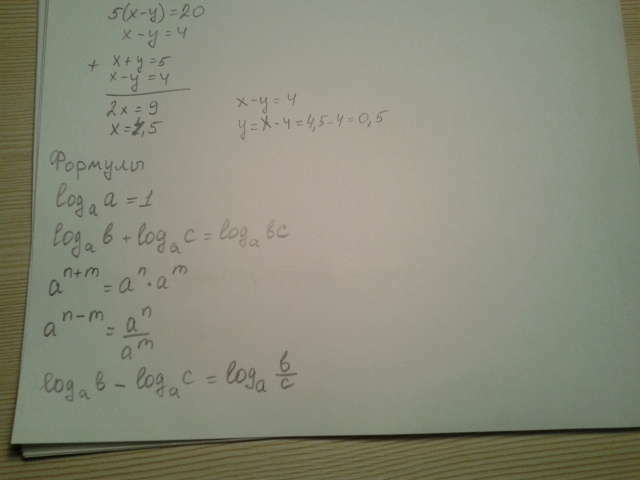 5(x-y)=20
x-y=4
+ x+y=5
x-y=4
2x=9
x=4,5
x-y=4
y=x-4=4,5-4=0,5
Формулы
logₐ a=1
logₐ в + logₐ c = logₐ вc
aⁿ⁺ᵐ = aⁿ · aᵐ
aⁿ⁻ᵐ = aⁿ/aᵐ
logₐ в - logₐ c = logₐ в/c